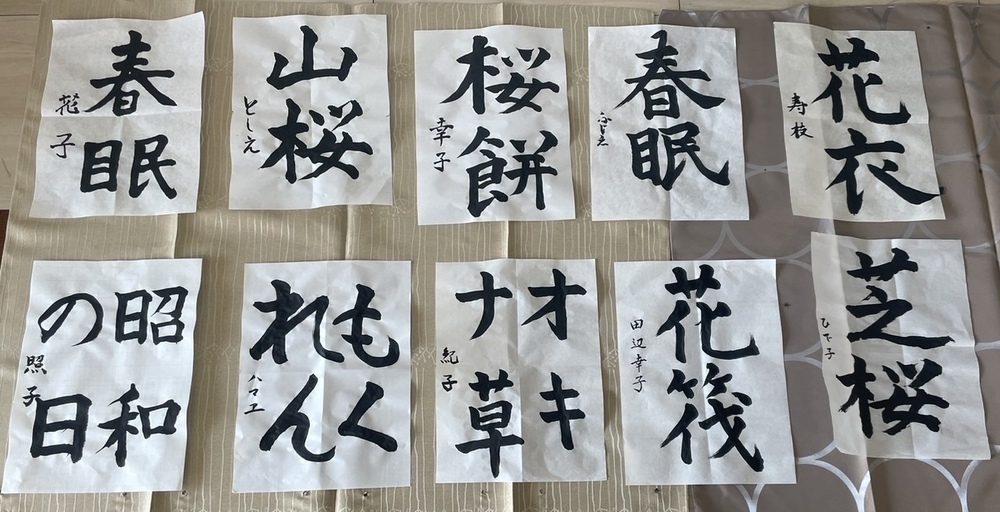 春眠
山桜
とし元
桜餅
幸子
春眠
花衣
寿枝
昭和
の日
照子
もく
れん
ハマエ
オキ
ナ草
紀子
花筏
田辺幸子
芝桜
ひで子